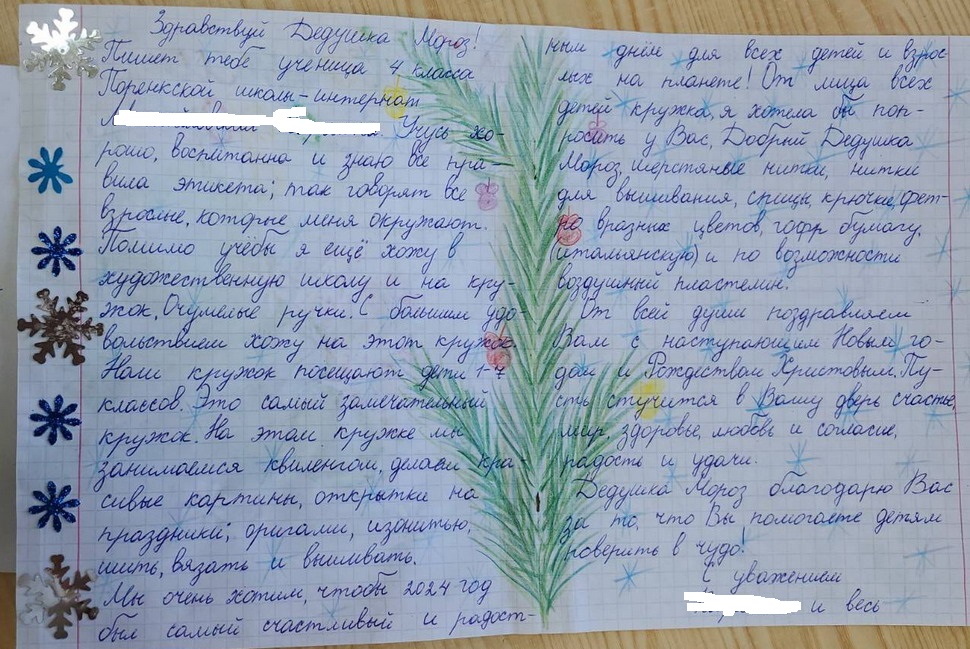 Здравствуй Дедушка Мороз!
Пишет тебе ученица 4 класса
Поренкской школы-интернат
Учусь хо-
рошо, воспитанна и знаю все пра-
вила этикета; так говорят все
взрослые, которые меня окружают.
Помимо учёбы я ещё хожу в
художественную школу и на кру-
жок, Очумелые ручки. С большим удо-
вольствием хожу на этот кружок.
Наш кружок посещают дети 1-7
классов. Это самый замечательный
кружок. На этом кружке мы
занимаемся квиленгом, делаем кра-
сивые картины, открытки на
праздники; оригами, изонитью,
шить, вязать и вышивать.
Мы очень хотим, чтобы 2024 год
был самый счастливый и радост-
ным днём для всех детей и взрос
лых на планете! От лица всех
детей кружка, я хотела бы поп-
росить у Вас, Добрый Дедушка
Мороз, шерстяные нитки, нитки
для вышивания, спицы, крючки, фет-
ра вразных цветов, гофр бумагу,
(итальянскую) и по возможности
воздушный пластелин.
От всей души поздравляем
Вам с наступающем Новым го-
дом и Рождеством Христовым. Пу-
сть стучится в Вашу дверь счастье,
мир, здоровье, любовь и согласие,
радость и удачи.
Дедушка Мороз благодарю Вас
за то, что Вы помогаете детям
поверить в чудо!
С уважением
и весь